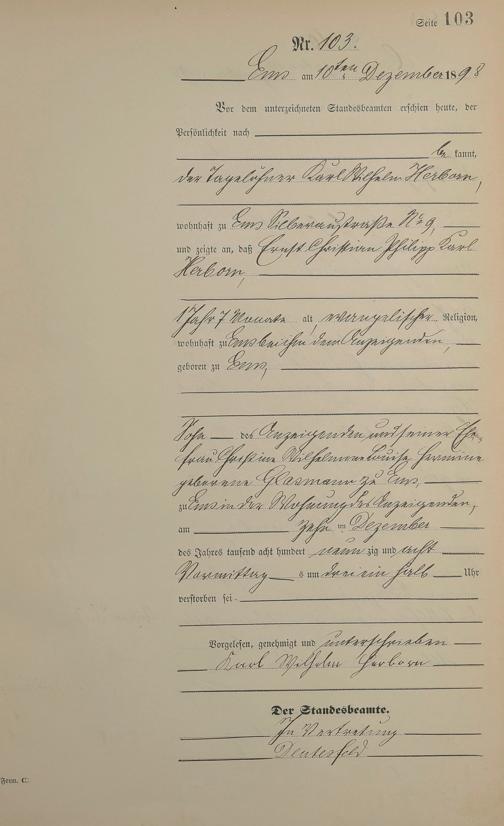 Seite 103
Nr. 103.
Ems am 10ten Dezember 1898
Vor dem unterzeichneten Standesbeamten erschien heute, der
Persönlichkeit nach
be kannt,
der Tagelöhner Karl Wilhelm Herborn,
wohnhaft zu Ems Silberaustraße No 9,
und zeigte an, daß Ernst Christian Philipp Karl
Herborn,
1 Jahr 7 Monate alt, evangelischer Religion,
wohnhaft zu Ems bei ihm dem Anzeigenden,
geboren zu Ems,
Sohn des Anzeigenden und seiner Ehe-
frau Christine Wilhelmine Louise Hermine
geborene Glasmann zu Ems,
zu Ems in der Wohnung des Anzeigenden,
am zehn ten Dezember
des Jahres tausend acht hundert neun zig und acht
Vormittag s um drei ein halb Uhr
verstorben sei
Vorgelesen, genehmigt und unterschrieben
Karl Wilhelm Herborn
Der Standesbeamte.
In Vertretung
Form. C.